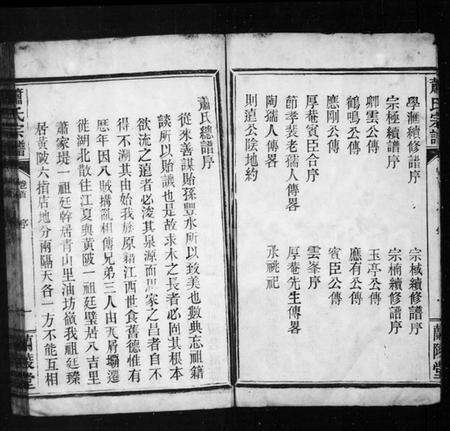 蕭氏宗譜
蘭陵堂
學海續修譜序
宗棫續修譜序
宗極續譜序
宗楠續修譜序
卿雲公傳
玉亭公傳
鶴鳴公傳
應有公傳
應剛公傳
賓臣公傳
厚菴賓臣合序
雲峯序
節孝裴老孺人傳畧
厚菴先生傳畧
陶孺人傳畧
永祧祀
則遠公陰地約
蕭氏總譜序
從來善謀貽孫豐水所以致美也數典忘祖籍
談所以貽譏也是故求木之長者必固其根本
欲流之遠者必浚其泉源而思家之昌者自不
得不溯其由始我族原籍江西世食舊德惟有
歷年因八賊搆亂相傳兄弟三人由瓦屑壩遷
徙湖北散往江夏與黃陂一祖廷璧居八吉里
蕭家堤一祖廷幹居青山里油坊嶺我祖廷臻
居黃陂六指店地分兩隔天各一方不能互相
蕭氏宗譜
序
蘭陵堂